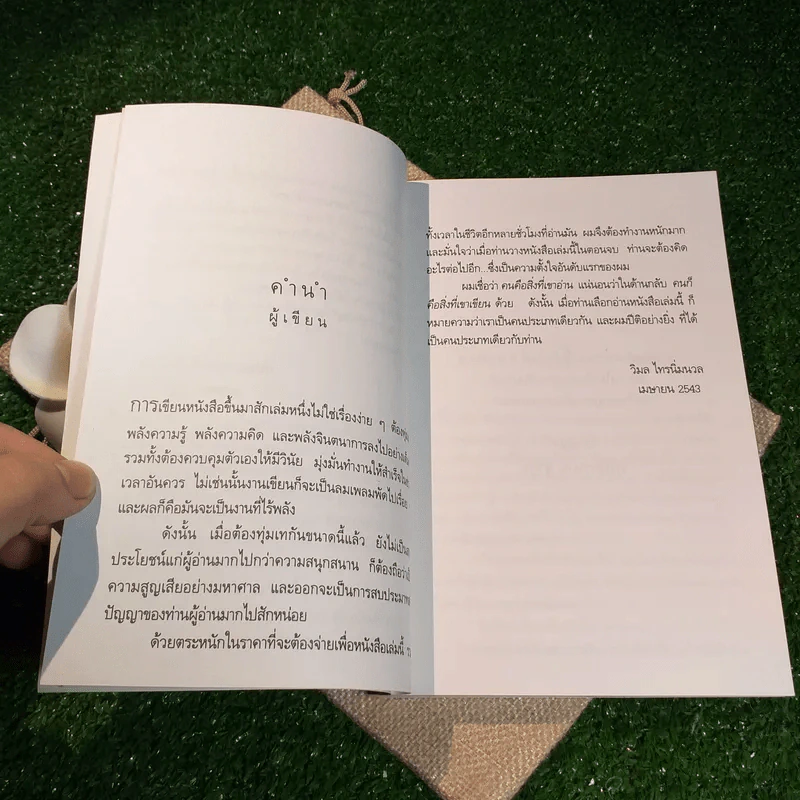 คำนำ
ผู้เขียน
การเขียนหนังสือขึ้นมาสักเล่มหนึ่งไม่ใช่เรื่องง่าย ๆ ต้องทุ่ม
พลังความรู้ พลังความคิด และพลังจินตนาการลงไปอย่าง
รวมทั้งต้องควบคุมตัวเองให้มีวินัย มุ่งมั่นทำงานให้สำเร็จ
เวลาอันควร ไม่เช่นนั้นงานเขียนก็จะเป็นลมเพลมพัดไปเรื่อย
และผลก็คือมันจะเป็นงานที่ไร้พลัง
ดังนั้น เมื่อต้องทุ่มเทกันขนาดนี้แล้ว ยังไม่เป็น
ประโยชน์แก่ผู้อ่านมากไปกว่าความสนุกสนาน ก็ต้องถือว่า
ความสูญเสียอย่างมหาศาล และออกจะเป็นการสบประมาท
ปัญญาของท่านผู้อ่านมากไปสักหน่อย
ด้วยตระหนักในราคาที่จะต้องจ่ายเพื่อหนังสือเล่มนี้
ทั้งเวลาในชีวิตอีกหลายชั่วโมงที่อ่านมัน ผมจึงต้องทำงานหนักมาก
และมั่นใจว่าเมื่อท่านวางหนังสือเล่มนี้ในตอนจบ ท่านจะต้องคิด
อะไรต่อไปอีก...ซึ่งเป็นความตั้งใจอันดับแรกของผม
ผมเชื่อว่า คนคือสิ่งที่เขาอ่าน แน่นอนว่าในด้านกลับ คนก็
คือสิ่งที่เขาเขียน ด้วย ดังนั้น เมื่อท่านเลือกอ่านหนังสือเล่มนี้ ก็
หมายความว่าเราเป็นคนประเภทเดียวกัน และผมปีติอย่างยิ่ง ที่ได้
เป็นคนประเภทเดียวกับท่าน
วิมล ไทรนิ่มนวล
เมษายน 2543